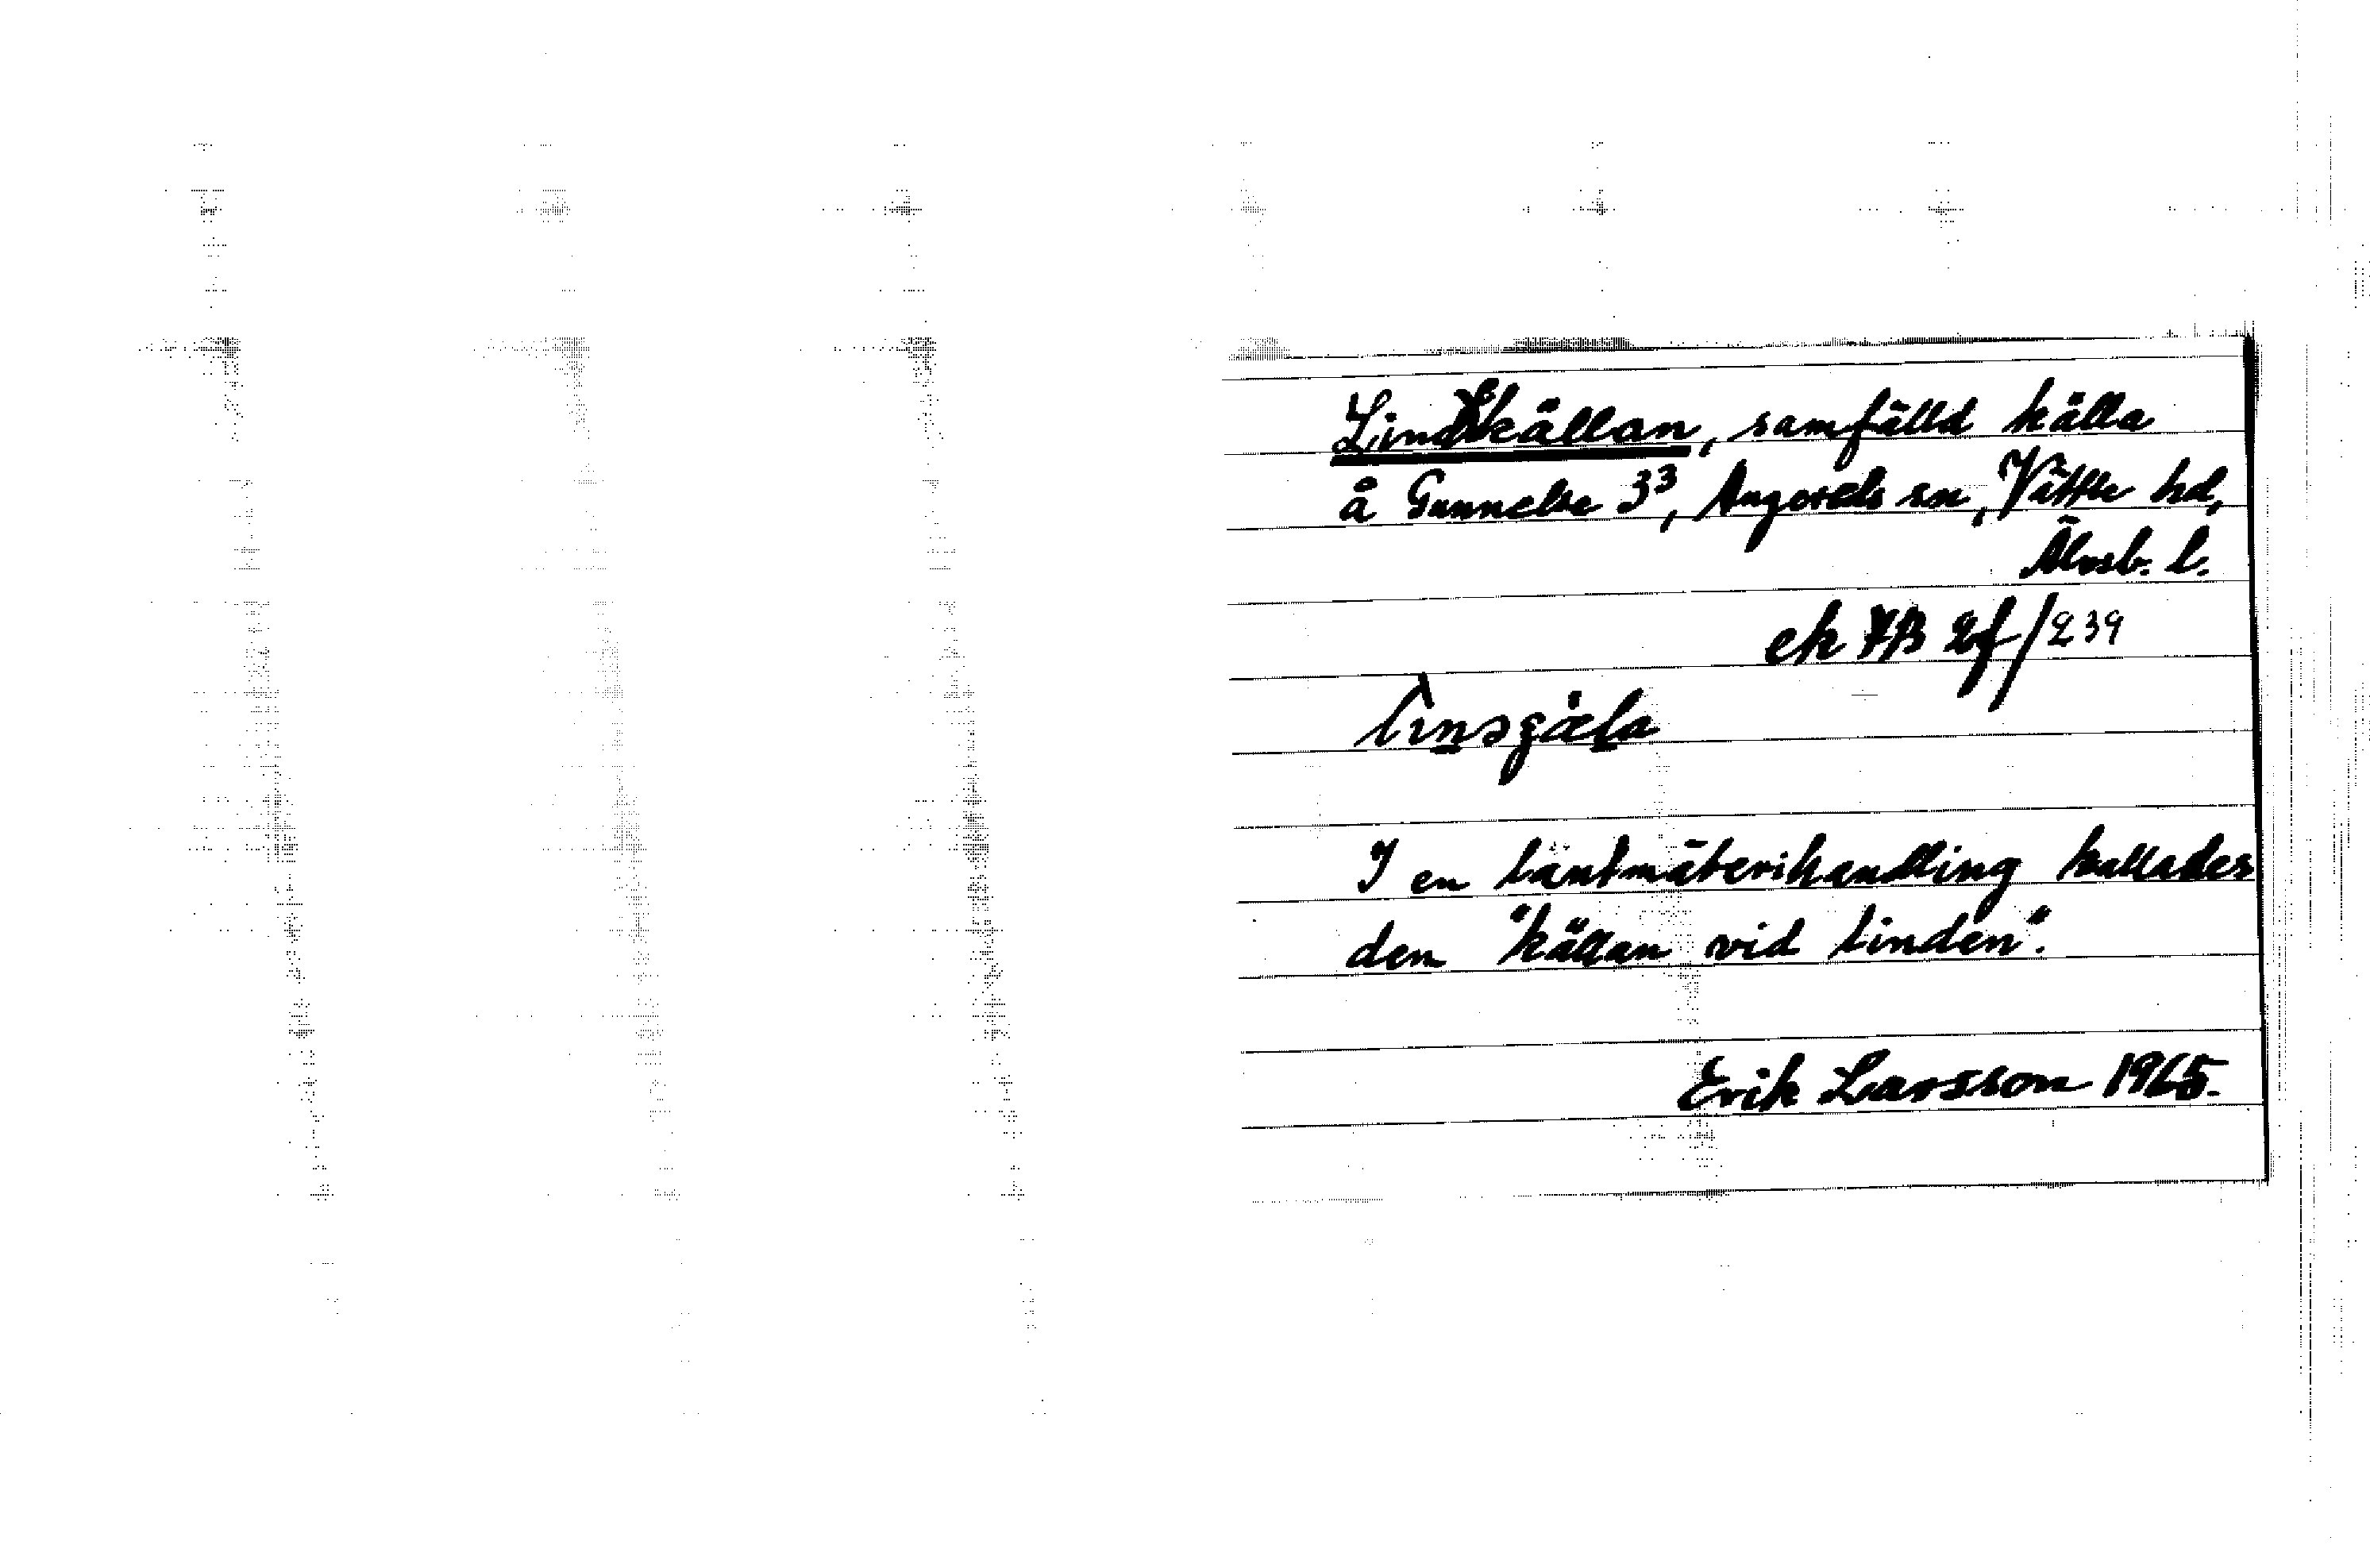 Lindkällan, samfälld källa
å Gunnelse 3³, Angereds sn, Vättle hd,
Älvsb. l.
ek 7B 2f/239
I en lantmäterihandling kallades
den "källan vid linden".
Erik Larsson 1965.